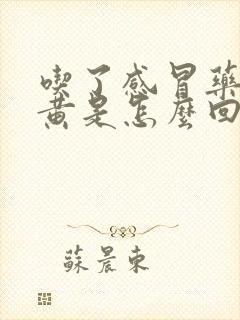 喫了感冒藥
黃是怎麼回
蘇晨東